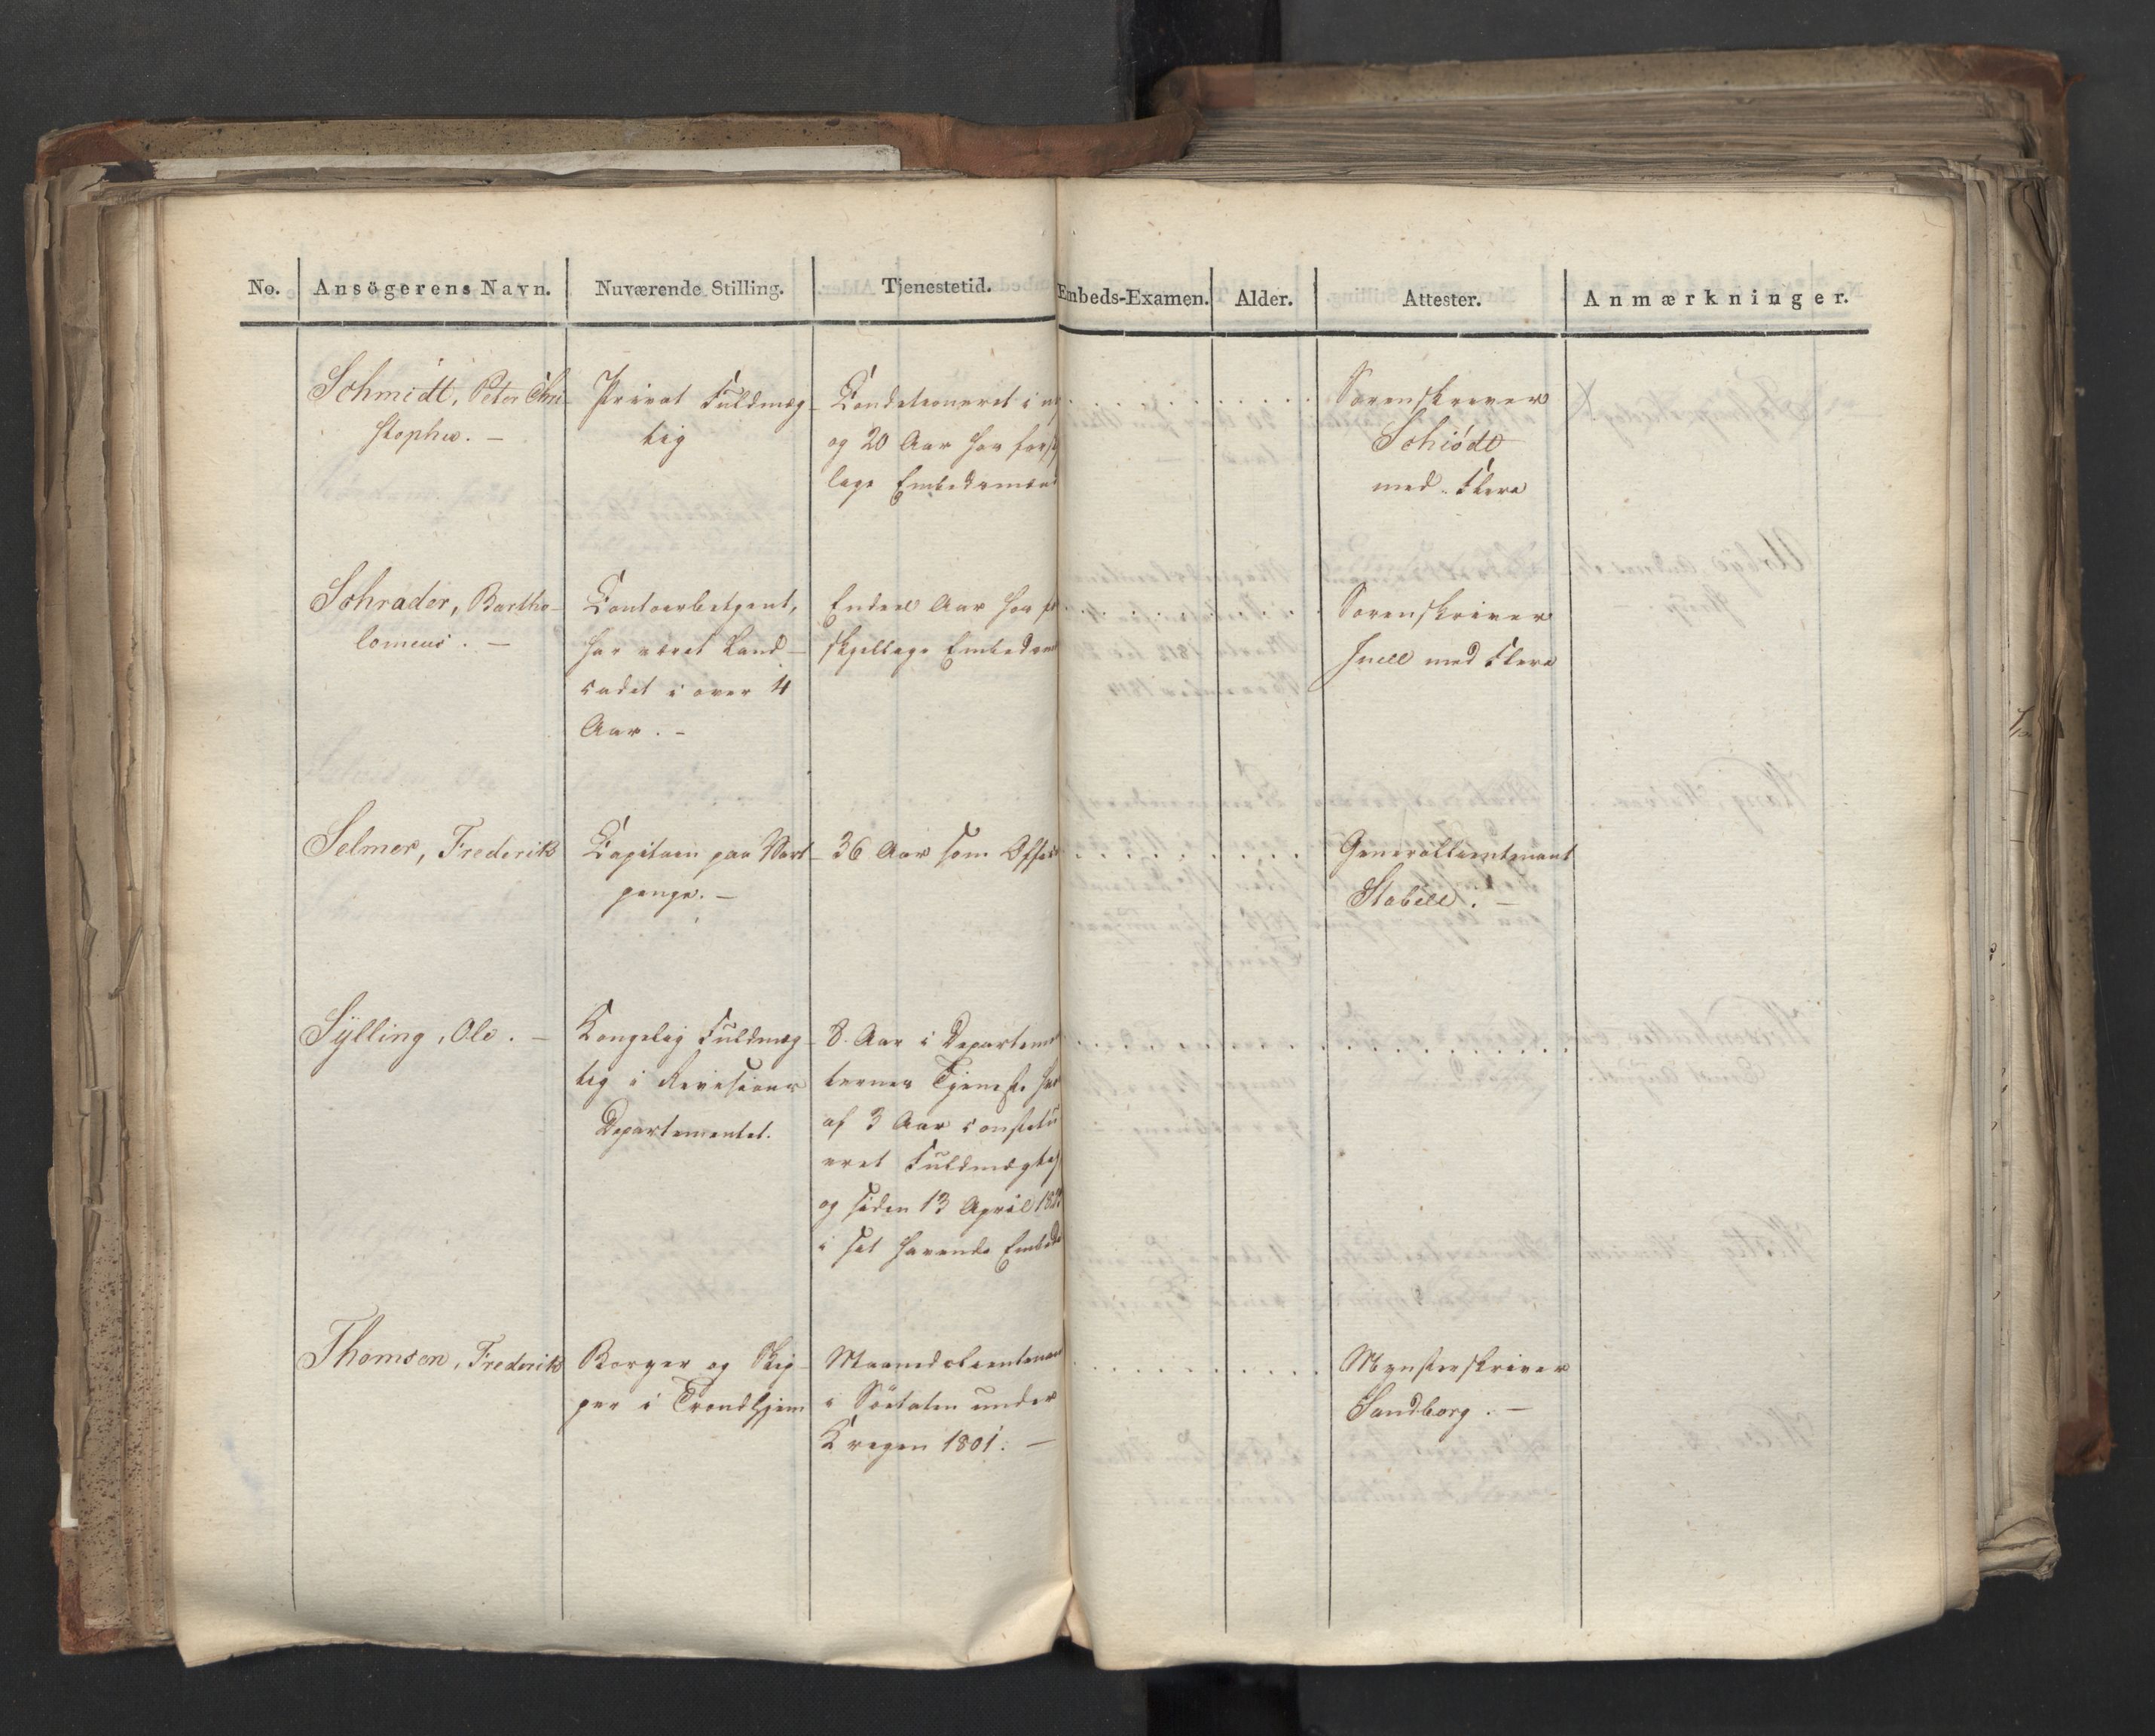 No. Ansögerens Navn. Nuværende Stilling. Tjenestetid. Embeds-Examen. Alder. Attester. Anmærkninger.
Schmidt, Peter Chri-
stopher. –
Privat Fuldmæg-
tig
Conditioneret i
og 20 Aar hos forskj
lige Embedsmænd
Sorenskriver
Schiödt
med Flere
Schrader, Bartho-
lomeus. –
Contoirbetjent,
har været Land-
cadet i over 4
Aar. –
Endeel Aar hos
skjellige Embedsm
Sorenskriver
Juell med Flere
Selmer, Frederik
Capitain paa Vart-
penge. –
36 Aar som Offic
Generallieutenant
Stabell. –
Sylling, Ole. –
Kongelig Fuldmæg-
tig i Revisions
Departementet.
8 Aar i Departemen
ternes Tjeneste her
af 3 Aar constitu
eret Fuldmægtig
og siden 13 April
i sit havende Embede
Thomsen, Frederik
Borger og Skip-
per i Trondhjem
Maanedslieutenant
i Söetaten under
Krigen 1801. –
Mynsterskriver
Sandborg. –